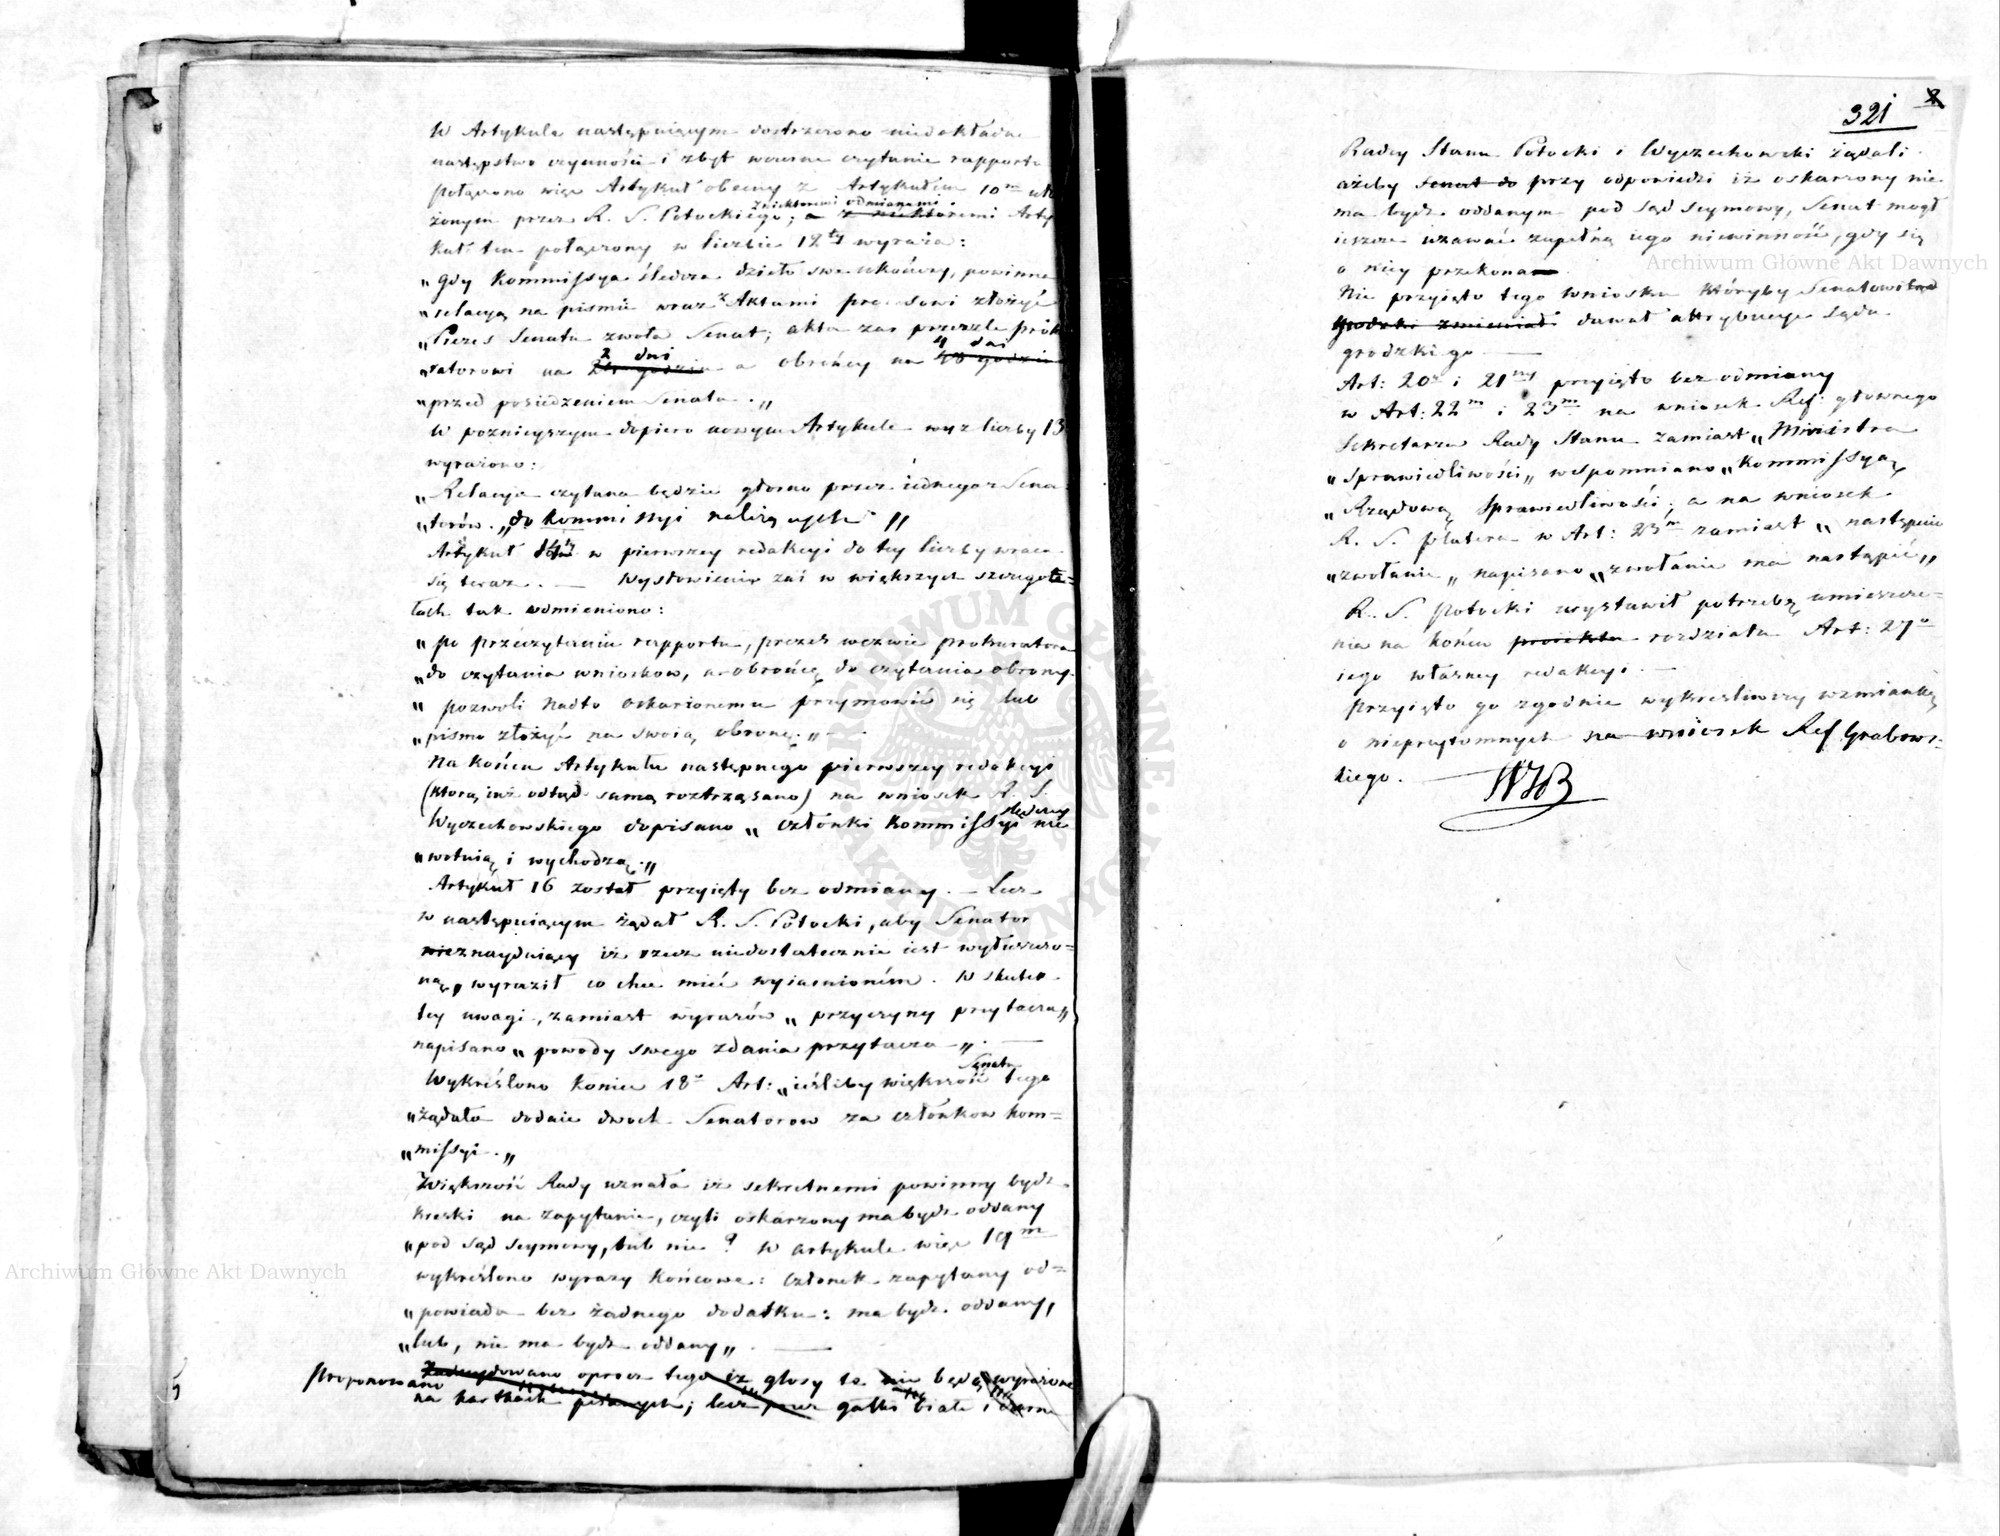 W Artykule następuiącym dostrzeżono niedokładne
następstwo czynności i zbyt wczesne czytanie rapportu
połączono więc Artykuł obecny z Artykułem 10m uło
żonym przez R. S. Potockiego; a z niektoremi z niektoremi odmianami. Arty
kuł ten połączony w liczbie 12ty wyraża:
„Gdy Kommissya śledcza dzieło swe ukończy, powinna
„relacyą na pismie wraz z Aktami processowi złożyć
„Prezes Senatu zwoła Senat; akta zas przeszle proku
„ratorowi na 24 godzin 2 dni a obrońcy na 48 godzin 4 dni
„przed posiedzeniem Senatu.„
W poznieyszym dopiero nowym Artykule wyż liczby 13
wyrażono:
„Relacya czytana będzie głosno przez iednego z Sena
„torów. „do kommissyi należących„
Artykuł 14ty w pierwszey redakcyi do tey liczby wraca
się teraz. — Wysłowienie zaś w większych szczegó-
łach tak odmieniono:
„po przeczytaniu rapportu, prezes wezwie prokuratora
„do czytania wniosków, a obrońcę do czytania obrony.
„pozwoli nadto oskarżonemu przymówić się lub
„pismo złożyć na swoią obronę.„ —
Na końcu Artykułu następnego pierwszey redakcyi
(którą iuż odtąd samą roztrząsano) na wniosek R. S.
Wyczechowskiego dopisano „członki Kommissyi śledczey nie
„wotuią i wychodzą.„
Artykuł 16 został przyięty bez odmiany. — Lecz
w następuiącym żądał R. S. Potocki, aby Senator
nieznayduiący iż rzecz niedostatecznie iest wyłuszczo=
ną, wyraził co chce mieć wyiaśnioném. W skutek
tey uwagi, zamiast wyrazów „przyczyny przytacza„
napisano „powody swego zdania przytacza„. —
Wykreślono koniec 18o Art: „ieśliby większość Senatu tego
„żądała dodaie dwoch Senatorow za członkow kom=
„missyi.„
Większość Rady uznała iż sekretnemi powinny bydź
kreski na zapytanie, czyli oskarzony ma bydź oddany
„pod sąd seymowy, lub nie? W artykule więc 19m
wykreślono wyrazy końcowe: Członek zapytany od=
„powiada bez żadnego dodatku: ma bydź oddany,
„lub, nie ma bydź oddany„. —
Proponowano Zadecydowano oprocz tego iż głosy te nie będą wyrażone
na kartkach pisanych; lecz przez gałki białe i czarne
321
Radcy Stanu Potocki i Wyczechowski żądali
ażeby Senat do przy odpowiedzi iż oskarzony nie
ma bydź oddanym pod sąd seymowy, Senat mogł
ieszcze uznawać zupełną iego niewinność, gdy się
o niey przekona
Nie przyięto tego wniosku któryby Senatowi sąd
grodzki zmieniał dawał attrybucye sądu
grodzkiego —
Art: 20o i 21ny przyięto bez odmiany
w Art: 22m i 23m na wniosek Ref. głownego
Sekretarza Rady Stanu zamiast „Ministra
„Sprawiedliwości„ wspomniano „Kommissyą
„Rządową Sprawiedliwości; a na wniosek
R. S. Platera w Art: 23m zamiast „następuie
„zwołanie„ napisano „zwołanie ma nastąpić„
R. S. Potocki wystawił potrzebę umieszcze=
nia na końcu proiektu rozdziału Art: 27o
iego własney redakcyi. —
Przyięto go zgodnie wykreśliwszy wzmiankę
o nieprzytomnych na wniosek Ref Grabows=
kiego. —
Archiwum Główne Akt Dawnych
Archiwum Główne Akt Dawnych
ARCHIWUM GŁÓWNE AKT DAWNYCH